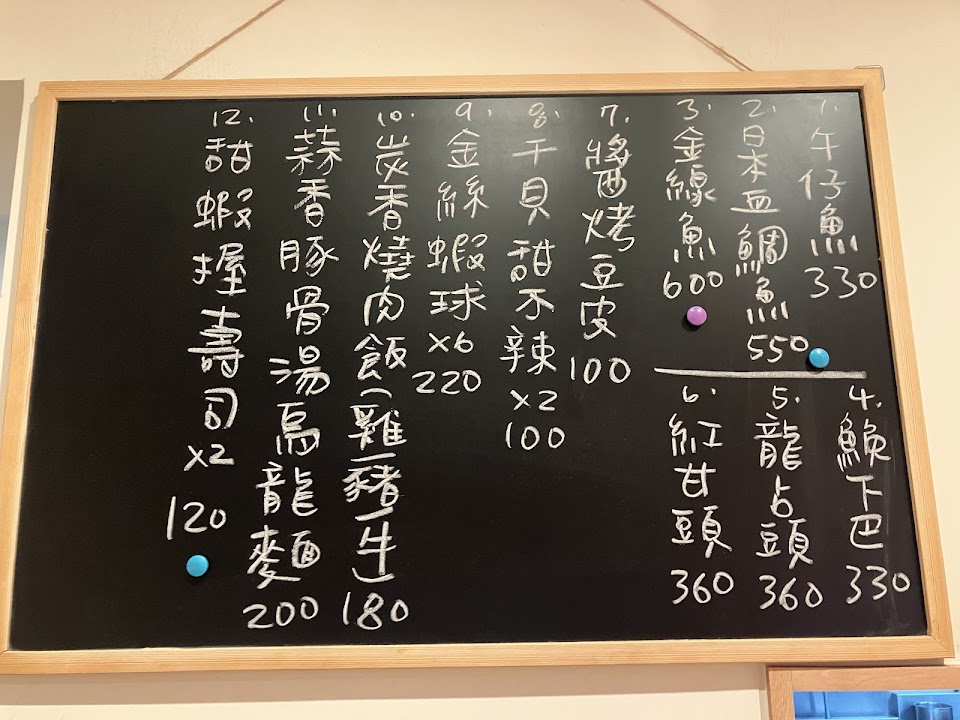 1. 午仔魚 330
2. 日本血鯛魚 550
3. 金線魚 600
4. 鮸下巴 330
5. 龍占頭 360
6. 紅甘頭 360
7. 醬烤豆皮 100
8. 干貝甜不辣 x2 100
9. 金絲蝦球 x6 220
10. 炭香燒肉飯(雞/豬/牛) 180
11. 蒜香豚骨湯烏龍麵 200
12. 甜蝦握壽司 x2 120